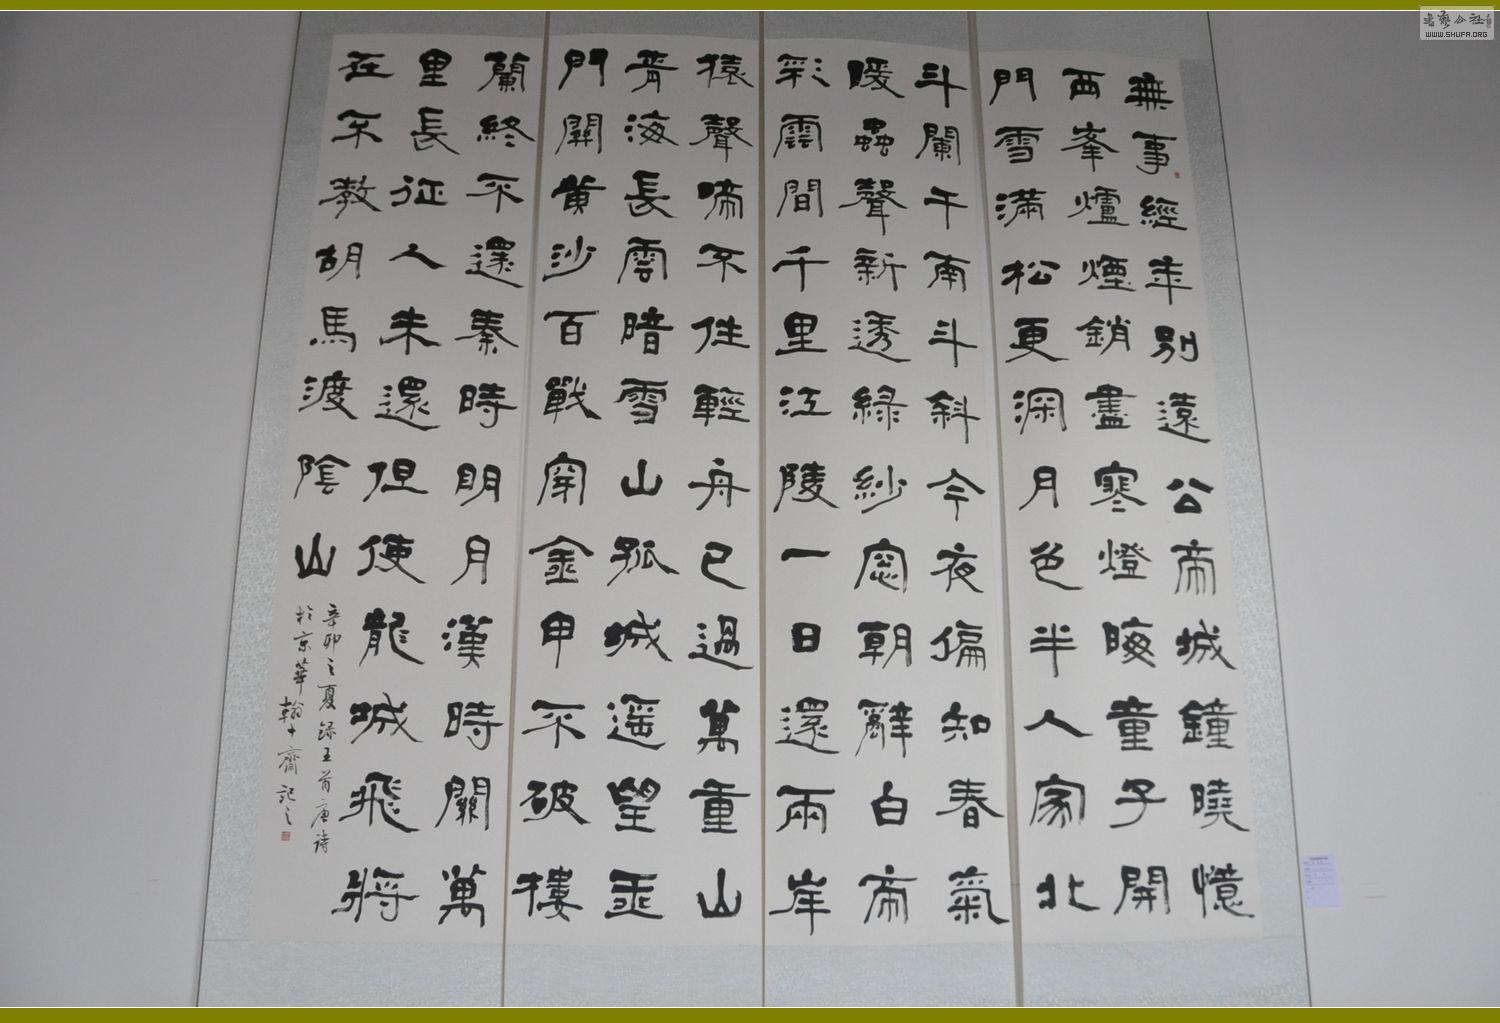 無事經年別遠公帝城鐘曉憶
西峯爐煙銷盡寒燈晦童子開
門雪滿松更深月色半人家北
斗闌干南斗斜今夜偏知春氣
暖蟲聲新透綠紗窓朝辭白帝
彩雲間千里江陵一日還兩岸
猿聲啼不住輕舟已過萬重山
青海長雲暗雪山孤城遥望玉
門關黃沙百戰穿金甲不破樓
蘭終不還秦時明月漢時關萬
里長征人未還但使龍城飛將
在不教胡馬渡陰山
辛卯之夏錄五首唐诗
於京華翰十齋記之
书艺公社
WWW.SHUFA.ORG